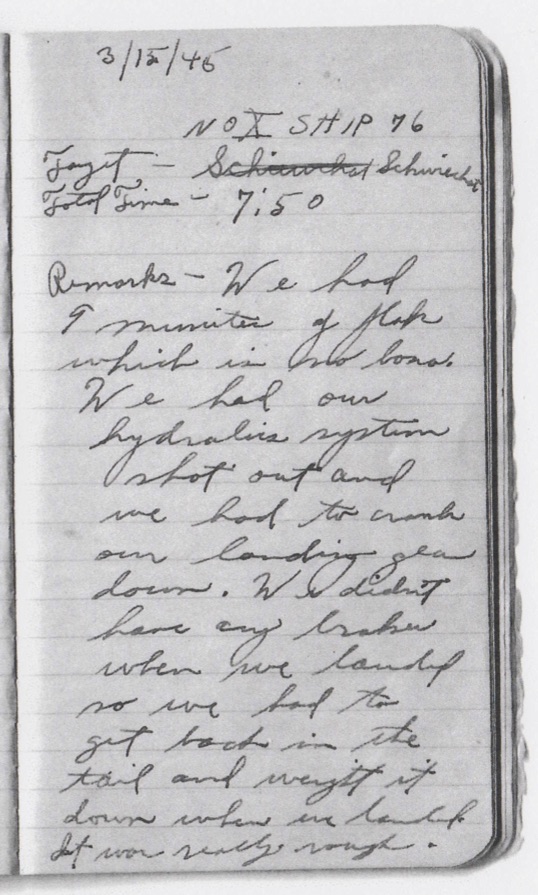 3/15/45
NO X SHIP 76
Target - Schiewchat Schwiechat
Total Time - 7:50
Remarks - We had
9 minutes of flak
which is no bono.
We had our
hydralis system
shot out and
we had to crank
our landing gear
down. We didn't
have any brakes
when we landed
so we had to
get back in the
tail and weight it
down when we landed.
It was really rough.